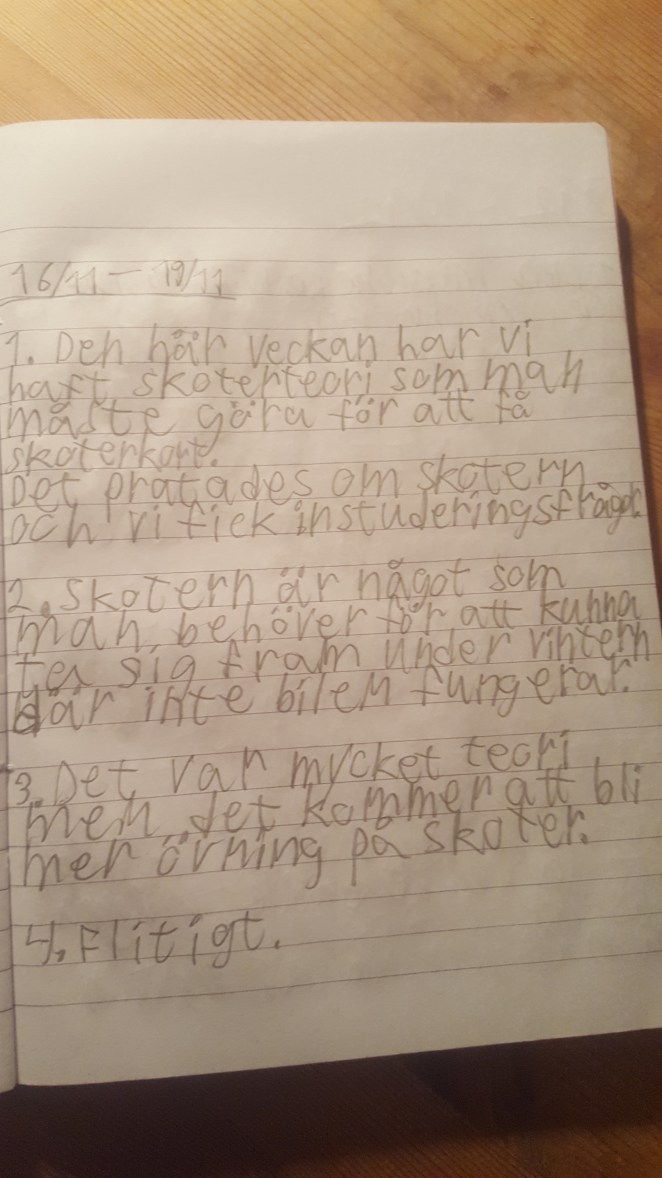 16/11 – 19/11
1. Den här veckan har vi
haft skoterteori som man
måste göra för att få
skoterkort.
Det pratades om skotern
och vi fick instuderingsfrågor.
2. Skotern är något som
man behöver för att kunna
ta sig fram under vintern
där inte bilen fungerar.
3. Det var mycket teori
men det kommer att bli
mer örning på skoter.
4. Flitigt.